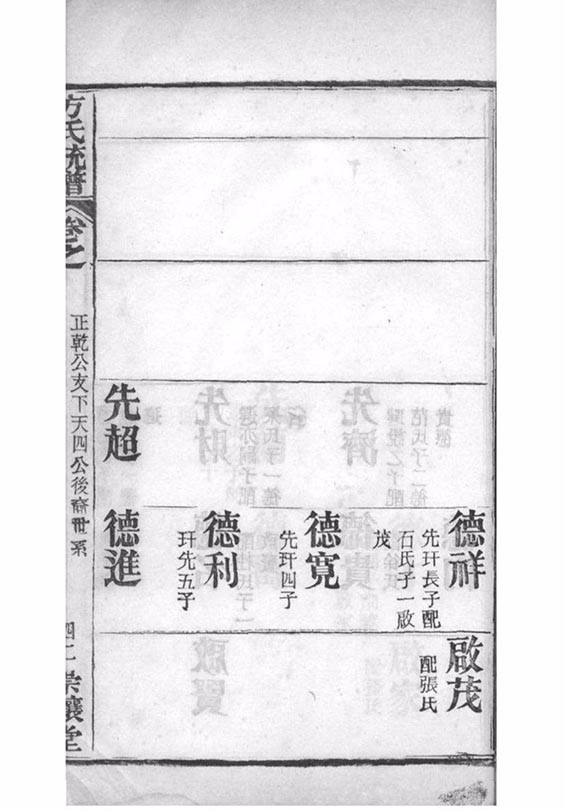 德祥
先玕長子配
石氏子一啟
茂
啟茂
配張氏
德寛
先玕四子
德利
玕先五子
先超
德進
方氏統譜
卷之
正乾公支下天四公後裔世系
四二
崇讓堂